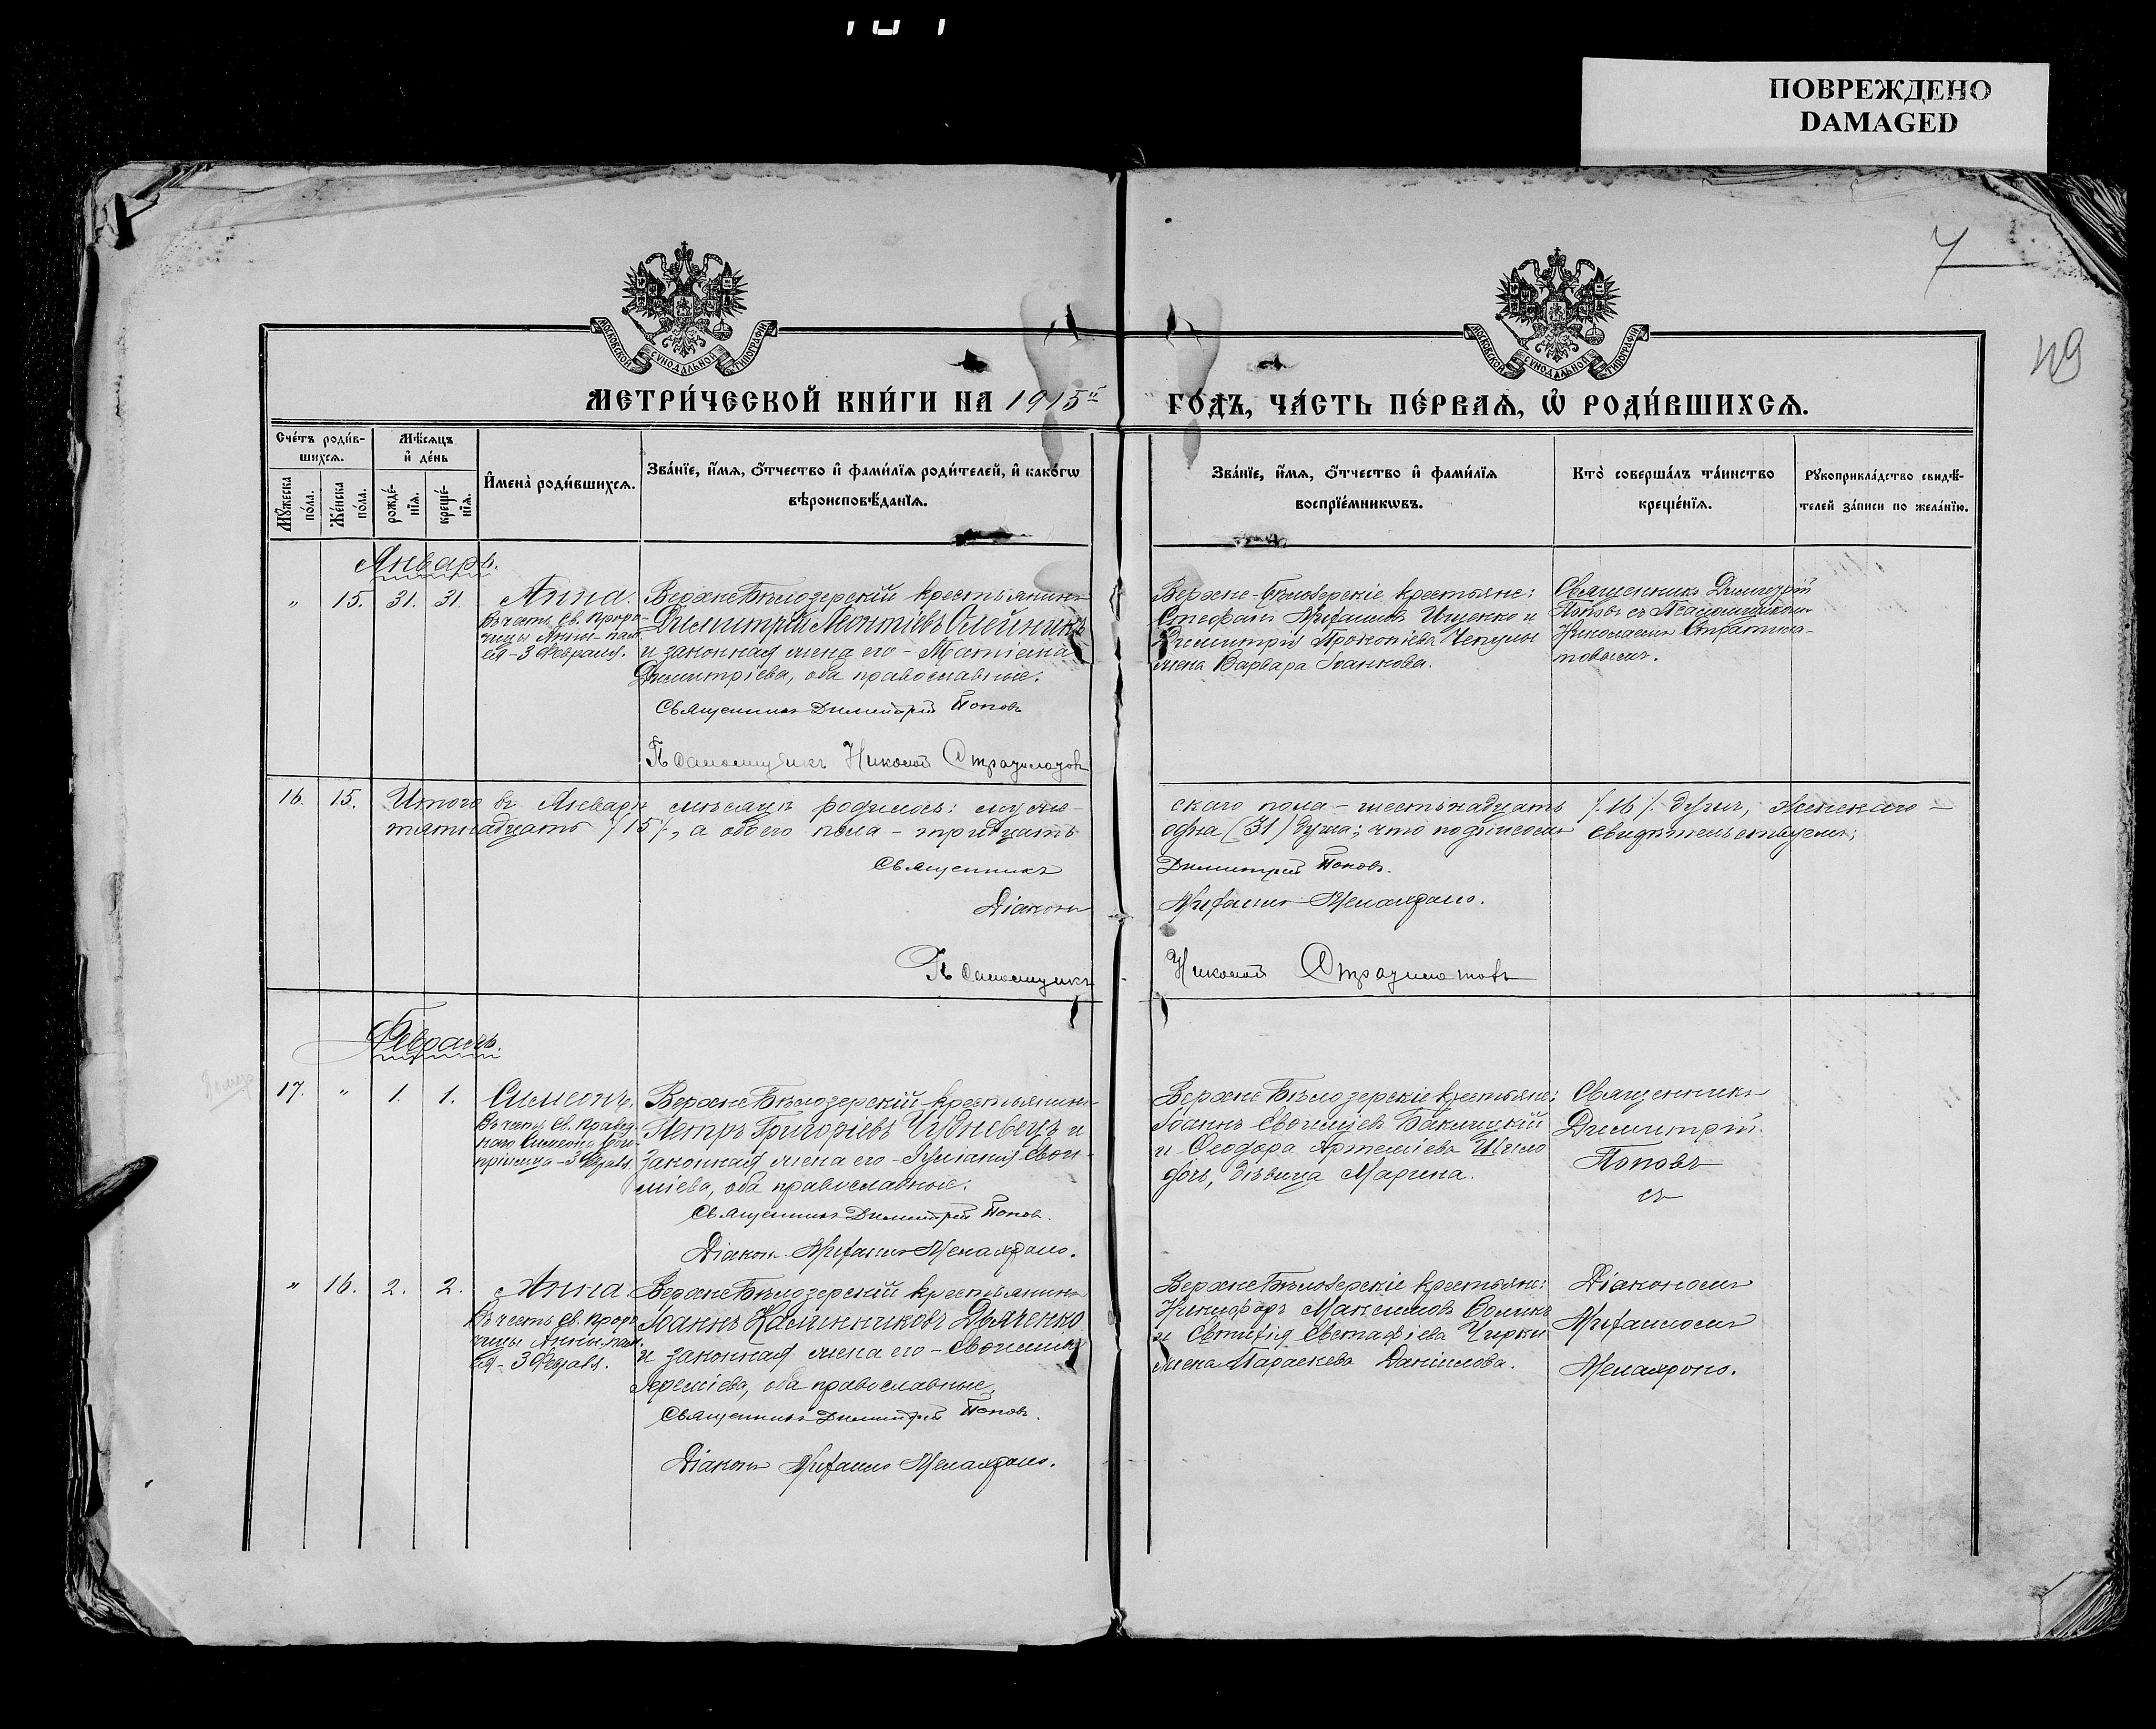 ПОВРЕЖДЕНО
DAMAGED
7
49
МОСКОВСКОЙ СУНОДАЛЬНОЙ ТИПОГРАФІИ
МОСКОВСКОЙ СУНОДАЛЬНОЙ ТИПОГРАФІИ
МЕТРИ́ЧЕСКОЙ КНИ́ГИ НА 1915й ГО́ДЪ, ЧА́СТЬ ПЕ́РВАѦ, Ѡ҆ РОДИ́ВШИХСѦ.
Сче́тъ роди́в-
шихсѧ.
Мѣ́сѧцъ
и҆ де́нь
Мꙋ́жеска
по́ла.
Же́нска
по́ла.
рожде́-
нїѧ.
креще́-
нїѧ.
И҆мена̀ роди́вшихсѧ.
Зва́нїе, и҆́мѧ, ѻ҆́тчество и҆ фами́лїѧ роди́телей, и҆ како́гѡ
вѣроисповѣ́данїѧ.
Зва́нїе, и҆́мѧ, ѻ҆́тчество и҆ фами́лїѧ
воспрїе́мникѡвъ.
Кто̀ соверша́лъ та́инство
креще́нїѧ.
Рꙋкоприкла́дство свидѣ́-
телей за́писи по жела́нїю.
Январь.
" 15. 31. 31. Анна.
Въ честь Св. Проро-
чицы Анны - пам.
ея - 3 Февраля.
Верхне Бѣлозерскій крестьянинъ
Димитрій Леонтіевъ Олейникъ
и законная жена его - Татіана
Димитріева, оба православные.
Священникъ Димитрій Поповъ
Псаломщикъ Николай Стратилатовъ
Верхне-Бѣлозерскіе крестьяне:
Стефанъ Ищенко и
Димитрія Прокопіева Чепурны
жена Варвара Іоаннова.
Священникъ Димитрій
Поповъ съ Псаломщикомъ
Николаемъ Стратила-
товымъ.
16. 15. Итого въ Январѣ мѣсяцѣ родилось: муже-
скаго пола - шестьнадцать /16/ душъ, женскаго -
пятнадцать /15/, а обоего пола - тридцать
одна (31) душа; что подписомъ свидѣтельствуемъ;
Священникъ Димитрій Поповъ.
Діаконъ
Псаломщикъ Николай Стратилатовъ
Февраль.
17. " 1. 1. Симеонъ.
Въ честь Св. Правед-
наго Симеона Бого-
пріимца - 3 Февраля.
Верхне Бѣлозерскій крестьянинъ
Петръ Григоріевъ Чудневецъ и
законная жена его - Іуліанія Евфи-
міева, оба православные.
Священникъ Димитрій Поповъ.
Діаконъ
Верхне Бѣлозерскіе крестьяне:
Іоаннъ Евфиміевъ Бакицкій
и Ѳеодора Артеміева
дочь, дѣвица Марина.
Священникъ
Димитрій
Поповъ
съ
" 16. 2. 2. Анна.
Въ честь Св. Проро-
чицы Анны - пам.
ея - 3 Февраля.
Верхне Бѣлозерскій крестьянинъ
Іоаннъ Калинниковъ Дьяченко
и законная жена его - Евфимія
Іереміева, оба православные.
Священникъ Димитрій Поповъ.
Діаконъ
Верхне Бѣлозерскіе крестьяне:
Никифоръ Максимовъ
и Евстафіева Чирки
жена Параскева Даніилова.
Діакономъ